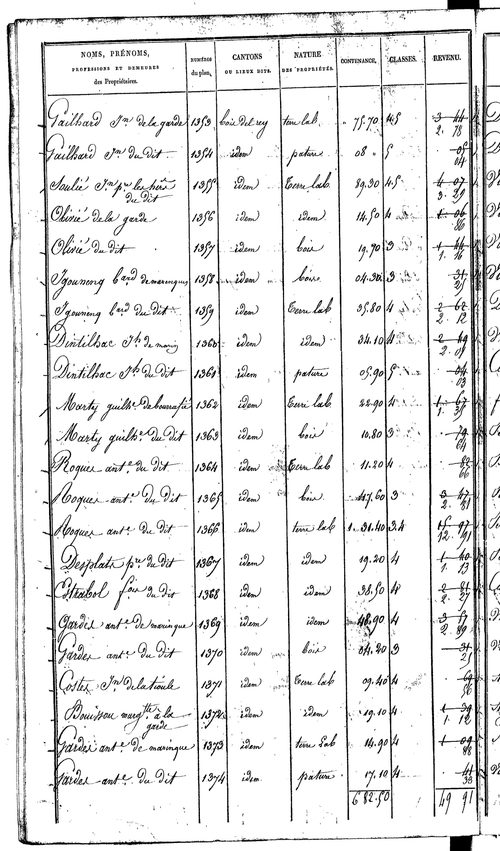 NOMS, PRÉNOMS, PROFESSIONS ET DEMEURES des Propriétaires. NUMÉROS du plan. CANTONS OU LIEUX DITS. NATURE DES PROPRIÉTÉS. CONTENANCE. CLASSES. REVENU.
Gailhard Jn. de la garde 1353 bois del rey terre lab. 75.70 4.5 3 44 2. 78
Gailhard Jn du dit 1354 idem pature 08 5 05 04
Soulié Jn pr les hérs du dit 1355 idem Terre lab. 89.30 4.5 4 07 3. 29
Olivié de la garde 1356 idem idem 14.50 4 1 06 86
Olivié du dit 1357 idem bois 19.70 3 1 44 1. 16
Igouneng bard de maringues 1358 idem bois 04.30 3 31 25
Igouneng bard du dit 1359 idem Terre lab 35.80 4 2 62 2. 12
Dintilhac Jh de marin 1360 idem idem 34.10 4 2 49 2. 01
Dintilhac Jh du dit 1361 idem pature 05.90 5 04 03
Marty guilhe. 1362 idem Terre lab. 22.90 4 1 67 1. 35
Marty guilhe. du dit 1363 idem bois 10.80 3 79 64
Roques ante. du dit 1364 idem Terre lab 11.20 4 82 66
Roques ante. du dit 1365 idem bois 47.60 3 3 47 2. 81
Roques ante. du dit 1366 idem terre lab 1.31.40 3.4 15 97 12. 91
Desplats pre du dit 1367 idem idem 19.20 4 1 40 1. 13
Estrabol fois du dit 1368 idem idem 38.50 4 2 81 2. 27
Gardes ante. de maringue 1369 idem idem 48.90 4 3 57 2. 89
Gardes ante. du dit 1370 idem bois 04.20 3 31 25
Costes Jn de la tioule 1371 idem Terre lab. 09.40 4 69 56
Bouisson margthe a la garde 1372 idem idem 19.10 4 1 39 1. 12
Gardes ante. de maringue 1373 idem terre lab 14.90 4 1 09 88
Gardes ante. du dit 1374 idem pature 17.10 4 41 33
682.50 49 91